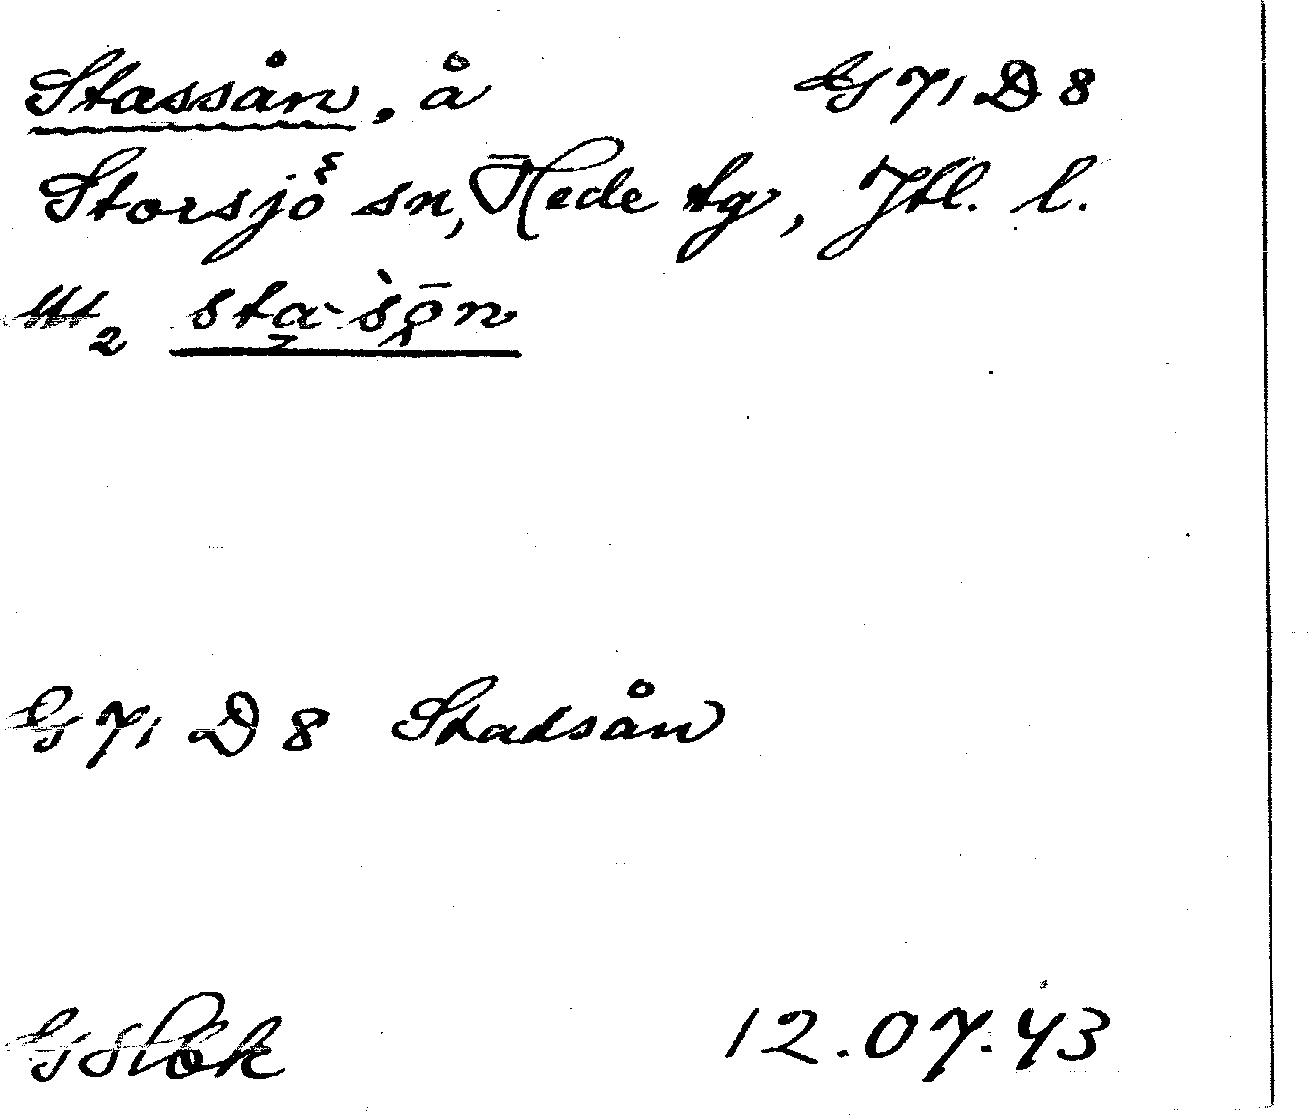 Stassån, å G 71 D 8
Storsjö sn, Hede tg, Jtl. l.
Ut₂ sta-sōn
G 71 D 8 Stadsån
12.07.43